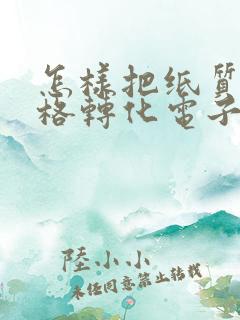 怎樣把纸質
格轉化電子
陸小小
未经同意禁止转载